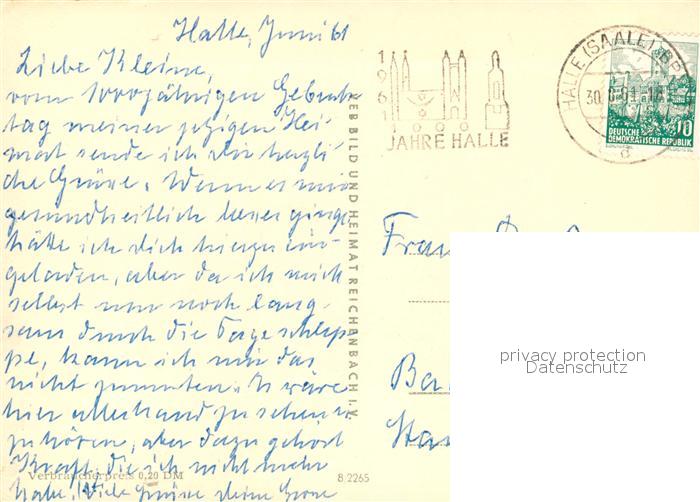 Halle, Juni 61
Liebe Kleine,
vom 1000jährigen Geburts
tag meiner jetzigen Hei-
mat sende ich dir herzli-
che Grüße. Wenn es mir
gesundheitlich besser ginge
hätte ich dich hierzu ein-
geladen, aber da ich mich
selbst nur noch lang-
sam durch die Tage schlep-
pe, kann ich mir das
nicht zumuten. Es wäre
hier allerhand zu sehen u.
zu hören, aber dazu gehört
Kraft, die ich nicht mehr
habe. Viele Grüße deine
Verbraucherpreis 0,20 DM
8 2265
VEB BILD UND HEIMAT REICHENBACH I. V.
1961
1000
JAHRE HALLE
HALLE (SAALE) BPA
30.6.61-18
d
10
DEUTSCHE
DEMOKRATISCHE REPUBLIK
Frau
privacy protection
Datenschutz
Ba